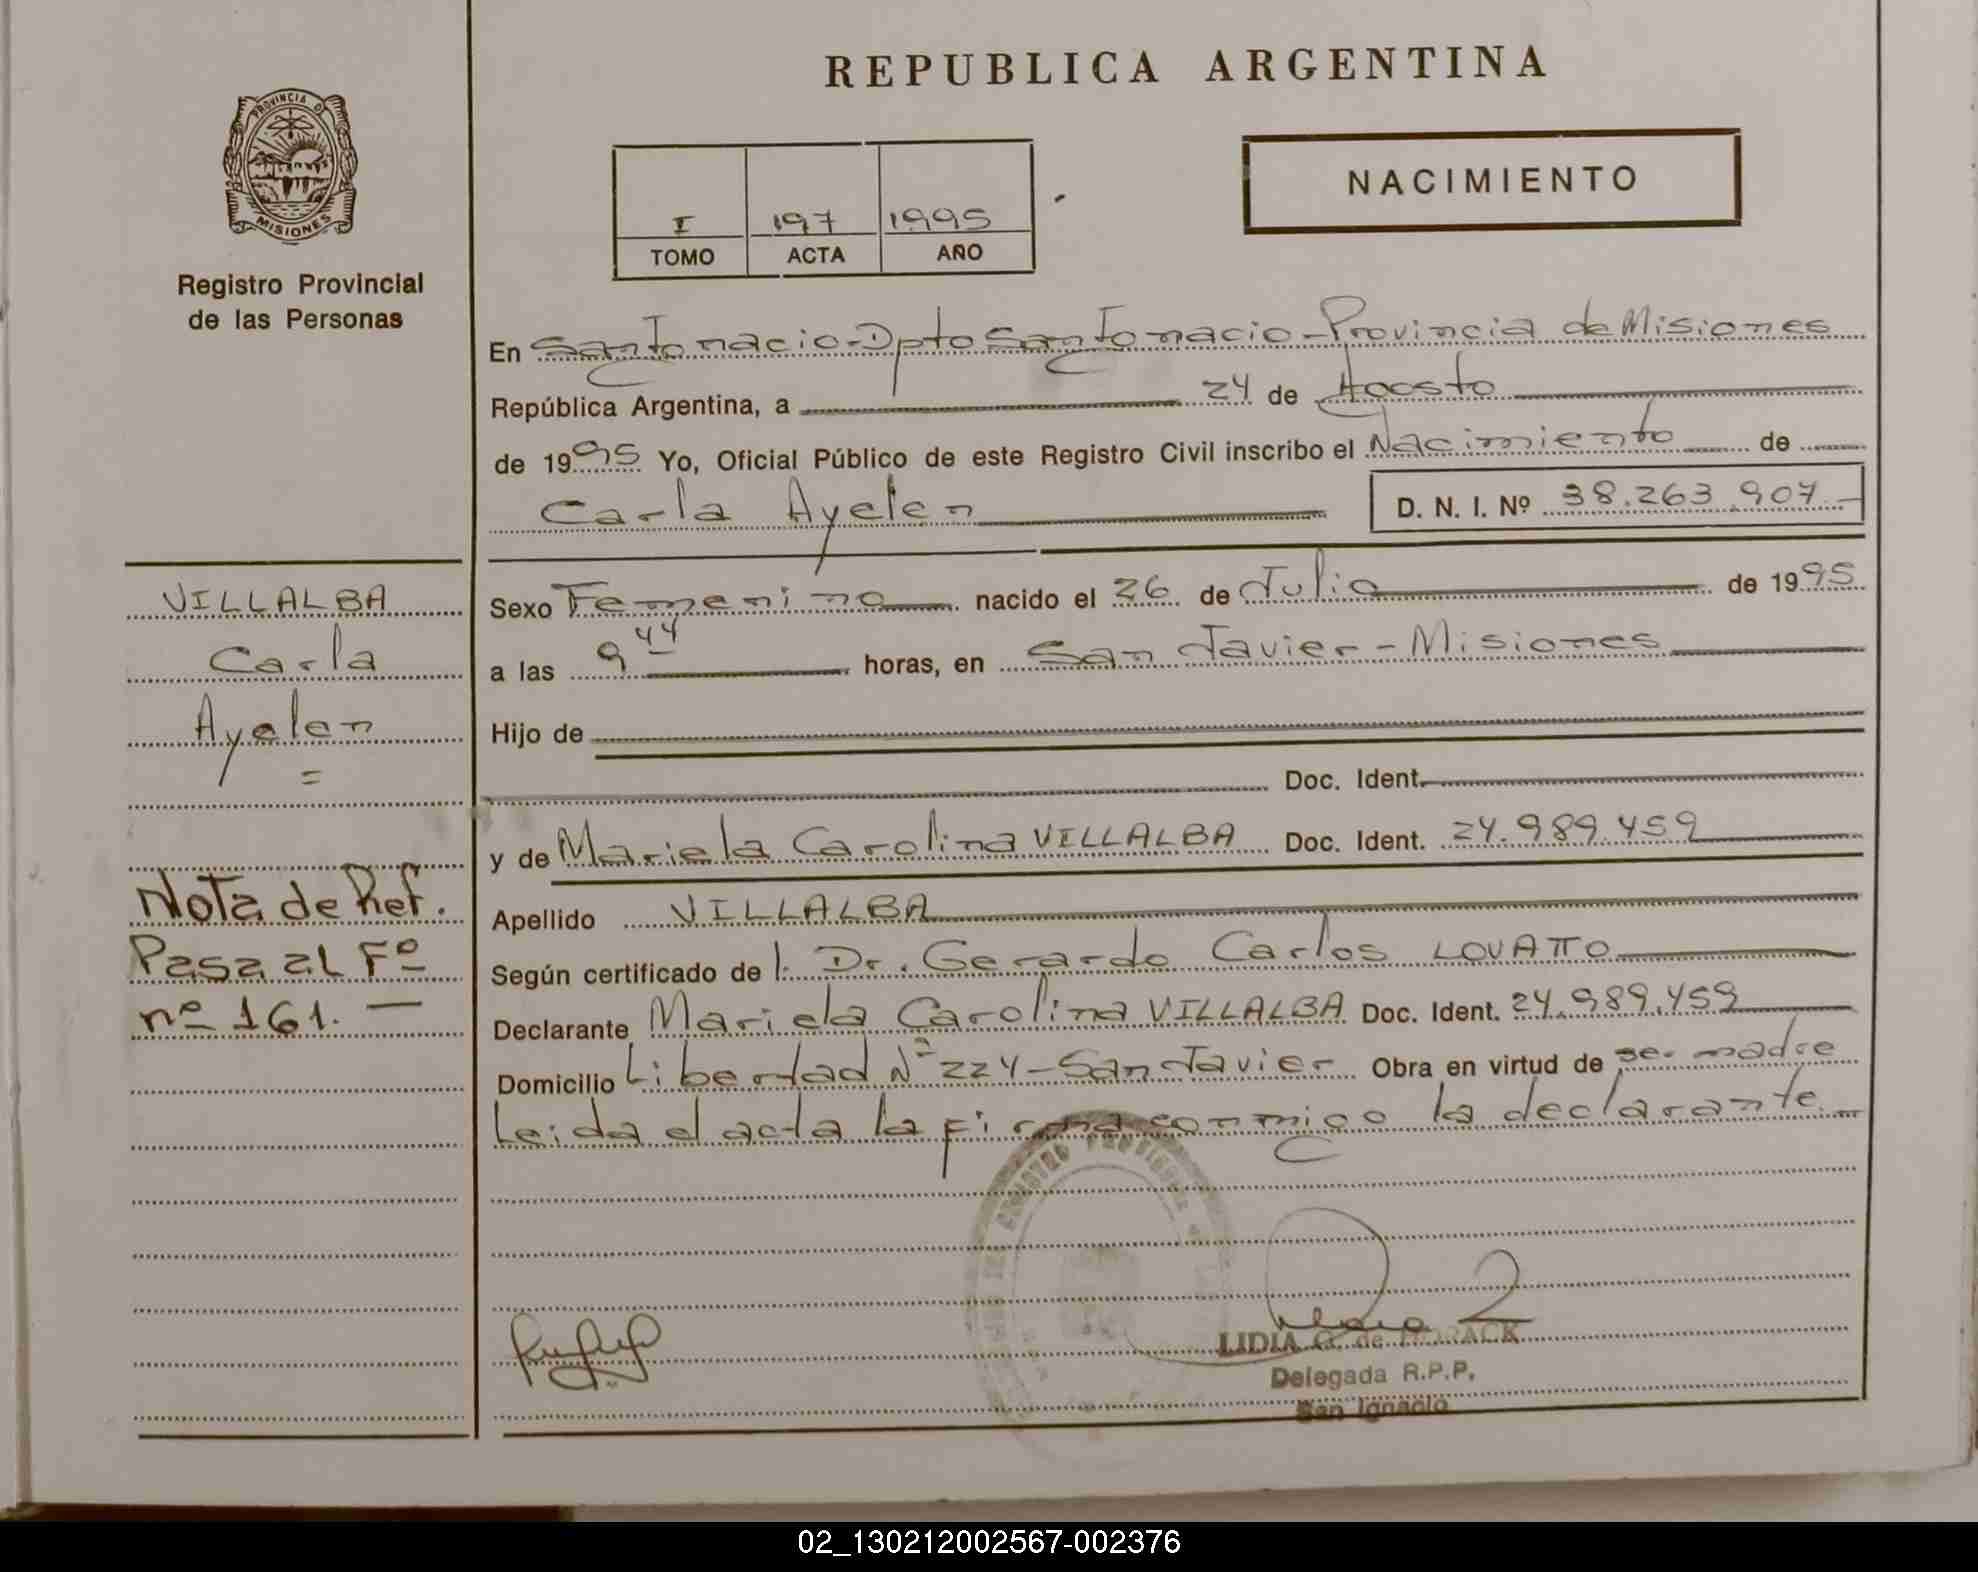 REPUBLICA ARGENTINA
PROVINCIA DE
MISIONES
Registro Provincial
de las Personas
I 197 1995
TOMO ACTA AÑO
NACIMIENTO
En San Ignacio - Dpto San Ignacio - Provincia de Misiones
República Argentina, a 24 de Agosto
de 1995 Yo, Oficial Público de este Registro Civil inscribo el Nacimiento de
Carla Ayelen D. N. I. Nº 38.263.907.-
VILLALBA
Carla
Ayelen
=
Sexo Femenino nacido el 26 de Julio de 1995
a las 9 44 horas, en San Javier - Misiones
Hijo de
Doc. Ident.
y de Mariela Carolina VILLALBA Doc. Ident. 24.989.459
Nota de Ref.
Pasa al Fº
nº 161. -
Apellido VILLALBA
Según certificado de l. Dr. Gerardo Carlos LOVATTO
Declarante Mariela Carolina VILLALBA Doc. Ident. 24.989.459
Domicilio Libertad Nº 224 - San Javier Obra en virtud de ser madre
Leida el acta la firma conmigo la declarante
REGISTRO PROVINCIAL
LIDIA G. de HORACK
Delegada R.P.P.
San Ignacio
02_130212002567-002376